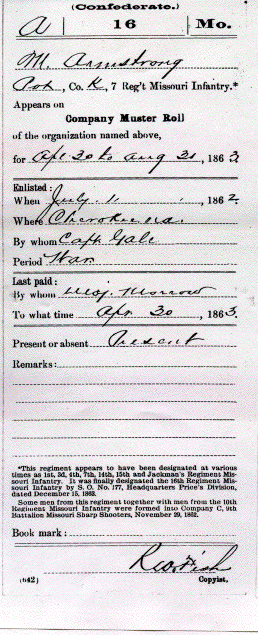 (Confederate.)
A 16 Mo.
M. Armstrong
Co. K, 7 Reg't Missouri Infantry.*
Appears on
Company Muster Roll
of the organization named above,
for Apl 30 to Aug 31, 1863.
Enlisted:
When July 1, 1862.
Where Cherokee Na.
By whom Capt Gale
Period War
Last paid:
By whom Maj. Morrow
To what time Apr. 30, 1863.
Present or absent Present
Remarks:
*This regiment appears to have been designated at various
times as 1st, 3d, 4th, 7th, 14th, 15th and Jackman's Regiment Mis-
souri Infantry. It was finally designated the 16th Regiment Mis-
souri Infantry by S. O. No. 177, Headquarters Price's Division,
dated December 15, 1863.
Some men from this regiment together with men from the 10th
Regiment Missouri Infantry were formed into Company C, 9th
Battalion Missouri Sharp Shooters, November 29, 1862.
Book mark:
Fish
(642) Copyist.